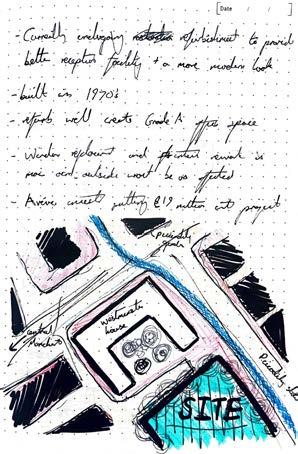 Date / /
- Currently undergoing refurbishment to provid
better reception facility + a more modern look
- built in 1970's
- refurb will create Grade A office space
- Window replacment and internal rework is
main aim outside wont be as affected
- Aviva invest putting £19 million into project
Piccadilly
Westminster
house
Central
Manchester
SITE
Piccadilly